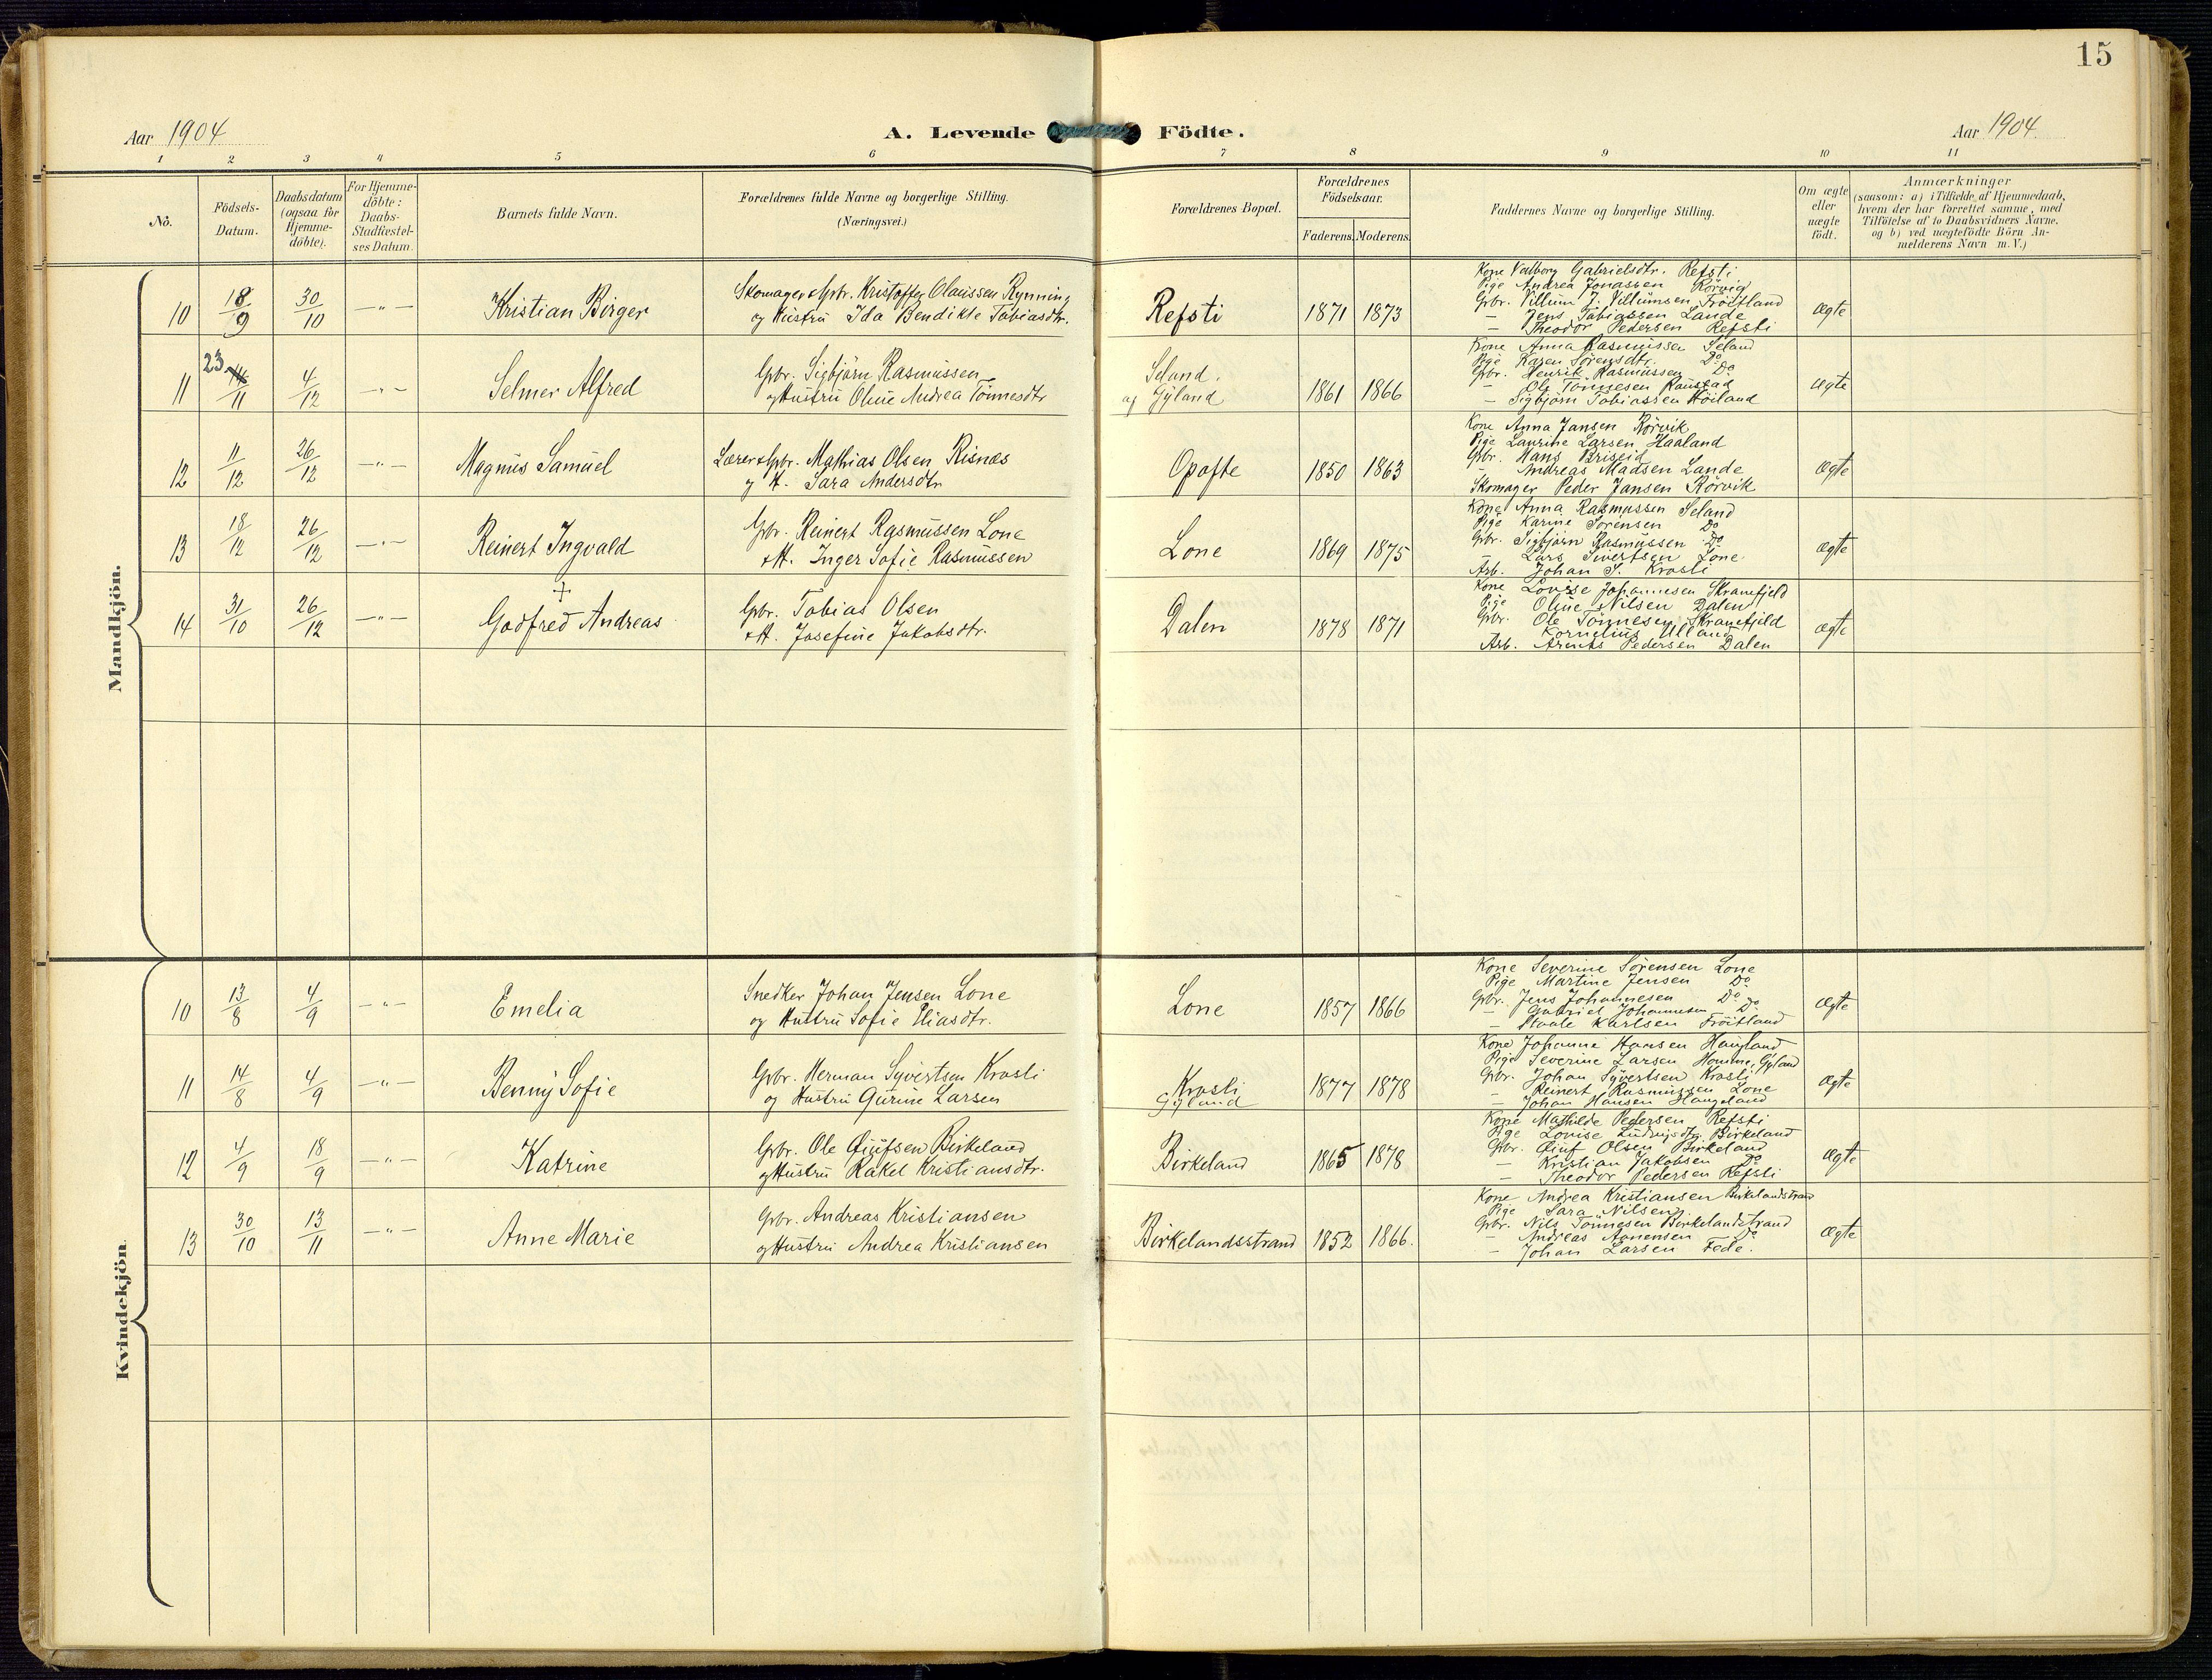 15
Aar 1904
A. Levende Födte.
Aar 1904
1 2 3 4 5 6 7 8 9 10 11
No.
Födsels-Datum.
Daabsdatum (ogsaa for Hjemme-döbte).
For Hjemme-döbte: Daabs-Stadfæstel-ses Datum.
Barnets fulde Navn.
Forældrenes fulde Navne og borgerlige Stilling.
(Næringsvei.)
Forældrenes Bopæl.
Forældrenes Födselsaar.
Faderens. Moderens.
Faddernes Navne og borgerlige Stilling.
Om ægte eller uægte födt.
Anmærkninger
(saasom: a) i Tilfælde af Hjemmedaab,
hvem der har forrettet samme, med
Tilföielse af to Daabsvidners Navne.
og b) ved uægtefödte Börn An-
melderens Navn m. V.)
Mandkjön.
10 18/9 30/10 —"— Kristian Birger
Skomager & Gbr. Kristoffer Olaussen Rynning
og Hustru Ida Bendikte Tobiasdtr.
Refsti 1871 1873
Kone Valborg Gabrielsdtr. Refsti
Pige Andrea Jonassen Rörvig
Gbr. Villum J. Villumsen Fröitland
— Jens Tobiassen Lande
— Theodor Pedersen Refsti
Ægte
11 23 14/11 4/12 —"— Selmer Alfred
Gbr. Sigbjörn Rasmussen
og Hustru Oline Andrea Tönnesdtr
Seland.
af Gyland
1861 1866
Kone Anna Rasmussen Seland
Pige Karen Sörensdtr. Do
Gbr. Henrik Rasmussen Do
— Ole Tönnesen Raustad
— Sigbjörn Tobiassen Höiland
Ægte
12 11/12 26/12 —"— Magnus Samuel
Lærer & Gbr. Mathias Olsen Risnæs
og H. Sara Andersdtr
Opofte 1850 1863
Kone Anna Jansen Rörvik
Pige Laurine Larsen Haaland
Gbr. Hans Briseid
— Andreas Madsen Lande
Skomager Peder Jansen Rörvik
Ægte
13 18/12 26/12 —"— Reinert Ingvald
Gbr. Reinert Rasmussen Lone
& H. Inger Sofie Rasmussen
Lone 1869 1875
Kone Anna Rasmussen Seland
Pige Karine Sörensen Do
Gbr. Sigbjörn Rasmussen Do
— Lars Sivertsen Lone.
Arb. Johan S. Krosli
Ægte
14 31/10 26/12 —"— Godfred Andreas
Gbr. Tobias Olsen
& H. Josefine Jakobsdtr.
Dalen 1878 1871
Kone Lovise Johannesen Skranefjeld
Pige Oline Nilsen Dalen
Gbr. Ole Tönnesen Skranefjeld
Kornelius Ulland
Arb. Pedersen Dalen
Ægte
Kvindekjön.
10 13/8 4/9 —"— Emelia
Snedker Johan Jensen Lone
og Hustru Sofie Eliasdtr.
Lone 1857 1866
Kone Severine Sörensen Lone
Pige Martine Jensen Do
Gbr. Jens Johannesen Do
— Gabriel Johannesen Do
— Staale Karlsen Fröitland
Ægte
11 14/8 4/9 —"— Benny Sofie
Gbr. Herman Syvertsen Krosli
og Hustru Gurine Larsen
Krosli
Gyland
1877 1878
Kone Johanne Hansen Haugland
Pige Severine Larsen Homme, Gyland
Gbr. Johan Syvertsen Krosli
— Reinert Rasmussen Lone
— Johan Hansen Haugeland
Ægte
12 4/9 18/9 —"— Katrine
Gbr. Ole Ejufsen Birkeland
og Hustru Rakel Kristiansdtr.
Birkeland 1865 1878
Kone Mathilde Pedersen Refsti
Pige Lovise Ludvigsdtr. Birkeland
Gbr. Ejuf Olsen Birkeland
— Kristian Jakobsen Do
— Theodor Pedersen Refsti
Ægte
13 30/10 13/11 —"— Anne Marie
Gbr. Andreas Kristiansen
og Hustru Andrea Kristiansen
Birkelandsstrand 1852 1866.
Kone Andrea Kristiansen Birkelandstrand
Pige Sara Nilsen
Gbr. Nils Tönnesen Birkelandstrand
— Andreas Aanensen Do
— Johan Larsen Fede.
Ægte